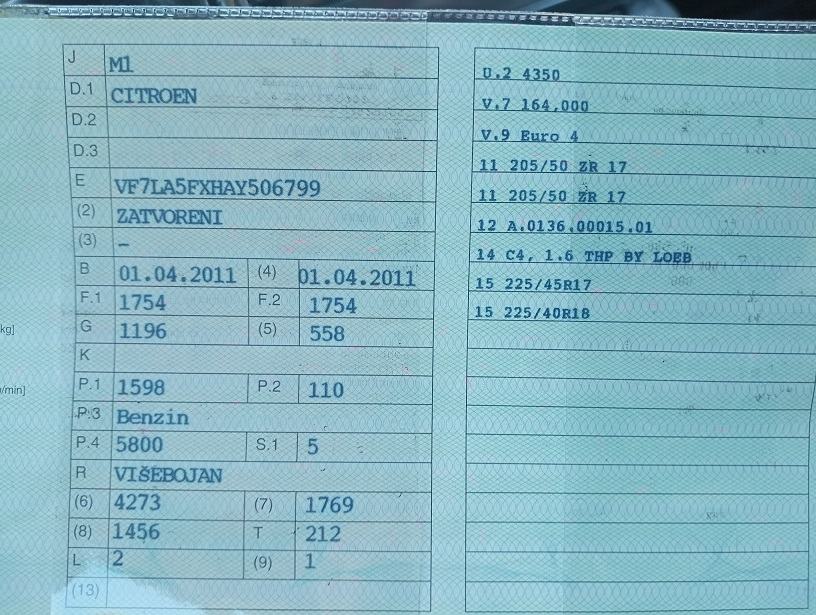 J M1
D.1 CITROEN
D.2
D.3
E VF7LA5FXHAY506799
(2) ZATVORENI
(3) –
B 01.04.2011 (4) 01.04.2011
F.1 1754 F.2 1754
kg] G 1196 (5) 558
K
/min] P.1 1598 P.2 110
P.3 Benzin
P.4 5800 S.1 5
R VIŠEBOJAN
(6) 4273 (7) 1769
(8) 1456 T 212
L 2 (9) 1
(13)
U.2 4350
V.7 164,000
V.9 Euro 4
11 205/50 ZR 17
11 205/50 ZR 17
12 A.0136.00015.01
14 C4, 1.6 THP BY LOEB
15 225/45R17
15 225/40R18